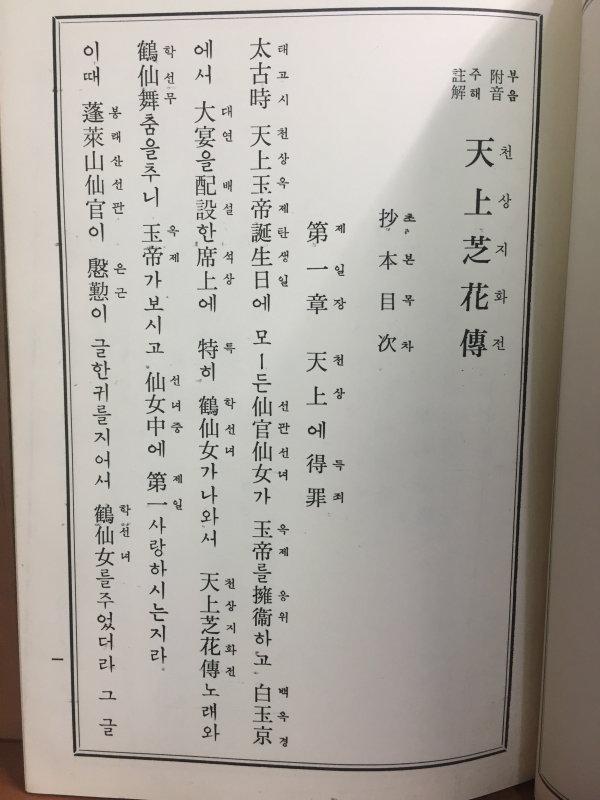 부음
附音
주해
註解
천상지화전
天上芝花傳
초본목차
抄本目次
제일장 천상 득죄
第一章 天上에得罪
태고시 천상옥제탄생일 선관선녀 옥제 옹위 백옥경
太古時 天上玉帝誕生日에 모ー든仙官仙女가 玉帝를擁衞하고 白玉京
대연 배설 석상 특 학선녀 천상지화전
에서 大宴을配設한席上에 特히 鶴仙女가나와서 天上芝花傳노래와
학선무 옥제 선녀중 제일
鶴仙舞춤을추니 玉帝가보시고 仙女中에 第一사랑하시는지라
봉래산선관 은근 학선녀
이때 蓬萊山仙官이 慇懃이 글한귀를지어서 鶴仙女를주었더라 그 글
一